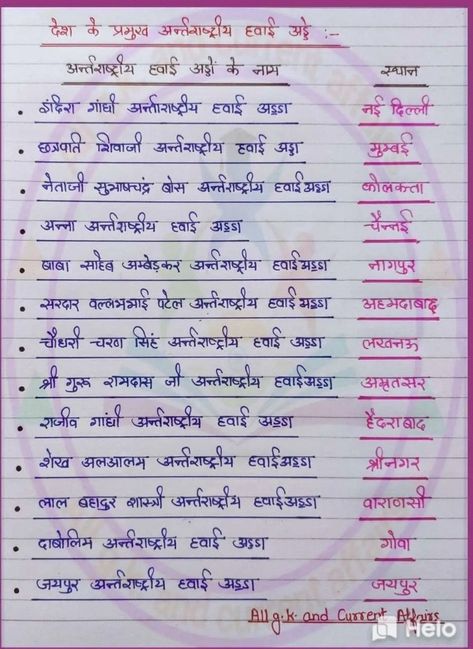 देश के प्रमुख अर्न्तराष्ट्रीय हवाई अड्डे :-
अर्न्तराष्ट्रीय हवाई अड्डों के नाम स्थान
इंदिरा गांधी अर्न्ताराष्ट्रीय हवाई अड्डा नई दिल्ली
छत्रपति शिवाजी अर्न्तराष्ट्रीय हवाई अड्डा मुम्बई
नेताजी सुभाषचंद्र बोस अर्न्तराष्ट्रीय हवाईअड्डा कोलकता
अन्ना अर्न्तराष्ट्रीय हवाई अड्डा चैन्नई
बाबा साहेब अम्बेडकर अर्न्तराष्ट्रीय हवाईअड्डा नागपुर
सरदार वल्लभभाई पटेल अर्न्तराष्ट्रीय हवाईअड्डा अहमदाबाद
चौधरी चरण सिंह अर्न्तराष्ट्रीय हवाई अड्डा लखनऊ
श्री गुरु रामदास जी अर्न्तराष्ट्रीय हवाईअड्डा अमृतसर
राजीव गांधी अर्न्तराष्ट्रीय हवाई अड्डा हैदराबाद
शेख अलआलम अर्न्तराष्ट्रीय हवाईअड्डा श्रीनगर
लाल बहादुर शास्त्री अर्न्तराष्ट्रीय हवाईअड्डा वाराणसी
दाबोलिम अर्न्तराष्ट्रीय हवाई अड्डा गोवा
जयपुर अर्न्तराष्ट्रीय हवाई अड्डा जयपुर
All g.k. and Current Affairs
Helo